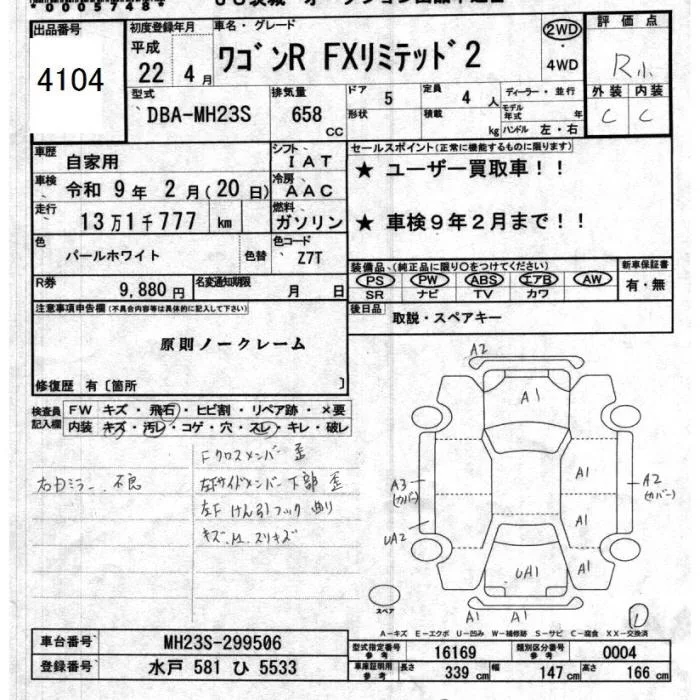 00057484
出品番号
4104
初度登録年月
平成
22 4月
車名・グレード
ワゴンR FXリミテッド2
2WD
・
4WD
評価点
R小
外装 内装
C C
型式
DBA-MH23S
排気量
658
CC
ドア
5
形状
定員
4 人
積載
kg
ディーラー・並行
モデル年式 年
ハンドル 左・右
車歴
自家用
シフト
IAT
車検
令和 9年 2月(20日)
冷房
AAC
走行
13万1千777 km
燃料
ガソリン
色
パールホワイト
色替
色コード
Z7T
R券
9,880円
名変通知期限
月 日
セールスポイント(正常に機能するものに限ります)
★ ユーザー買取車!!
★ 車検9年2月まで!!
装備品、(純正品に限り○をつけてください)
PS PW ABS エアB AW
SR ナビ TV カワ
新車保証書
有・無
後日品
取説・スペアキー
注意事項申告欄(不具合内容等は具体的に記入して下さい)
原則ノークレーム
修復歴 有〔箇所 〕
検査員記入欄
FW キズ・飛石・ヒビ割・リペア跡・×要
内装 キズ・汚レ・コゲ・穴・スレ・キレ・破レ
右ドミラー 不良
Fクロスメンバー 歪
左Fサイドメンバー下部 歪
左F けん引フック 曲り
キズ、M、スリキズ
A2
A1
A1
A3
(カバー)
A2
(カバー)
A1
UA2
UA1
A1
A1 A1
スペア
A-キズ E-エクボ U-凹み W-補修跡 S-サビ C-腐食 XX-交換済
車台番号
MH23S-299506
登録番号
水戸 581 ひ 5533
型式指定番号
参考
16169
類別区分番号
参考
0004
車庫証明用
参考
長さ 339 cm 幅 147 cm 高さ 166 cm